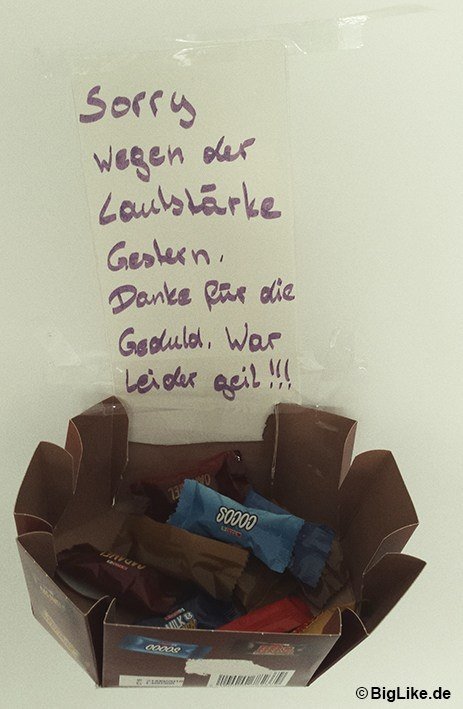 Sorry
wegen der
Lautstärke
Gestern.
Danke für die
Geduld. War
Leider geil!!!
COCOS
CARAMEL
MILK &
COCOS
© BigLike.de